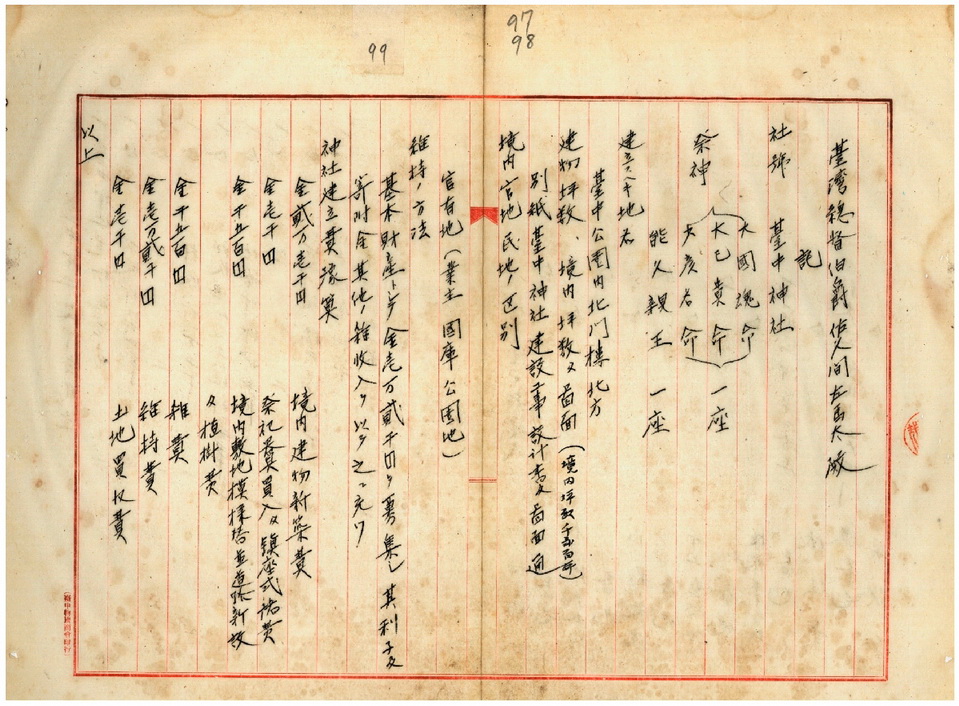 97
98
99
臺灣總督伯爵佐久間左馬太殿
記
社號　臺中神社
祭神
大國魂命
大己貴命　一座
少彦名命
能久親王　一座
建立スヘキ地名
臺中公園内北門樓北方
建物坪数、境内坪数及図面（境内坪数千五百坪）
別紙臺中神社建設工事設計書及図面通
境内官地民地ノ区別
官有地（業主国庫公園地）
維持ノ方法
基本財産トシテ金壱万貳千円ヲ募集シ其利子及
寄附金其他ノ雑收入ヲ以テ之ニ充ツ
神社建立費豫算
金貳万壱千円　境内建物新築費
金壱千円　祭祀具買入及鎮座式諸費
金千五百円　境内敷地模様替並道路新設
及植樹費
金千五百円　雑費
金壱万貳千円　維持費
金壱千円　土地買收費
以上